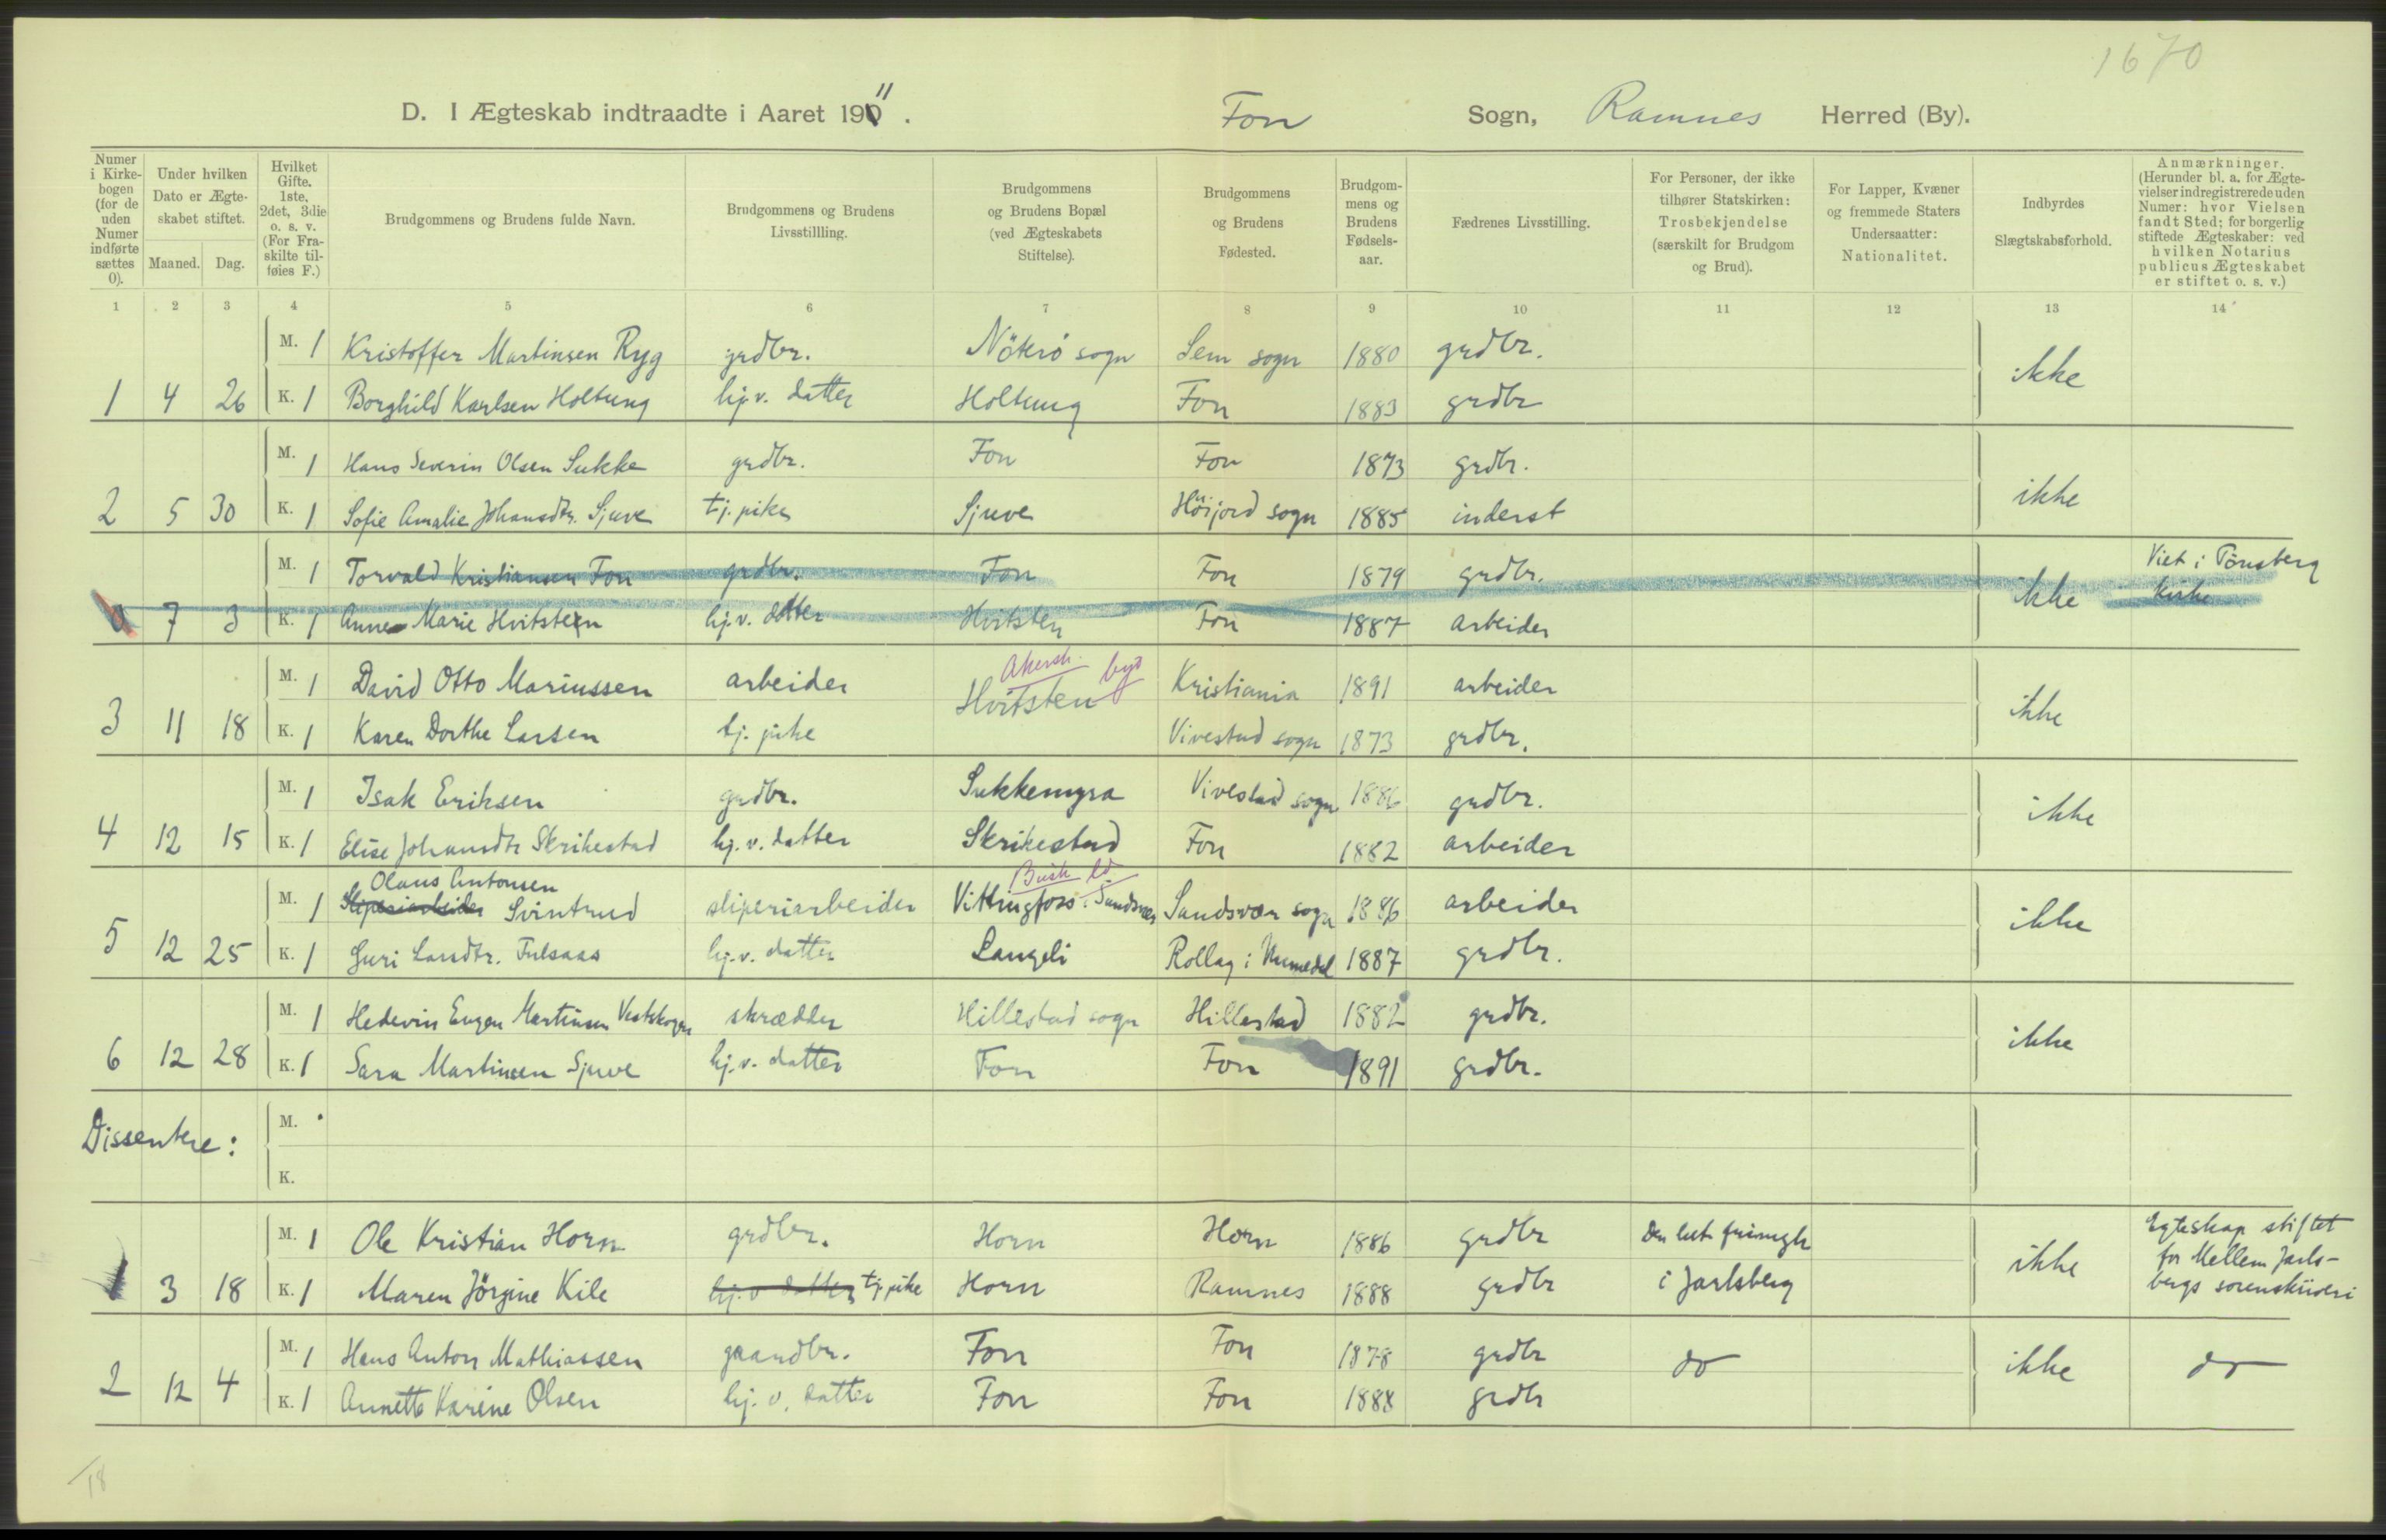 1670
D. I Ægteskab indtraadte i Aaret 1911. Fon Sogn, Ramnes Herred (By).
Numer i Kirke-bogen (for de uden Numer indførte sættes 0). Under hvilken Dato er Ægte-skabet stiftet. Maaned. Dag. Hvilket Gifte. 1ste, 2det, 3die o. s. v. (For Fra-skilte til-føies F.) Brudgommens og Brudens fulde Navn. Brudgommens og Brudens Livsstillling. Brudgommens og Brudens Bopæl (ved Ægteskabets Stiftelse). Brudgommens og Brudens Fødested. Brudgom-mens og Brudens Fødsels-aar. Fædrenes Livsstilling. For Personer, der ikke tilhører Statskirken: Trosbekjendelse (særskilt for Brudgom og Brud). For Lapper, Kvæner og fremmede Staters Undersaatter: Nationalitet. Indbyrdes Slægtskabsforhold. Anmærkninger. (Herunder bl. a. for Ægte-vielser indregistrerede uden Numer: hvor Vielsen fandt Sted; for borgerlig stiftede Ægteskaber: ved hvilken Notarius publicus Ægteskabet er stiftet o. s. v.)
1 2 3 4 5 6 7 8 9 10 11 12 13 14
M. 1 Kristoffer Martinsen Ryg grdbr. Nökrö sogn Sem sogn 1880 grdbr. ikke
1 4 26 K. 1 Borghild Karlsen Holtung hj.v. datter Holtung Fon 1883 grdbr
M. 1 Hans Severin Olsen Sukke grdbr. Fon Fon 1873 grdbr. ikke
2 5 30 K. 1 Sofie Amalie Johansdtr. Sjuve tj. pike Sjuve Höijord sogn 1885 inderst
M. 1 Torvald Kristiansen Fon grdbr. Fon Fon 1879 grdbr. ikke Viet i Tönsberg kirke
0 7 3 K. 1 Anne Marie Hvitsten hj.v. datter Hvitsten Fon 1887 arbeider
Akersh. by?
M. 1 David Otto Mariussen arbeider Hvitsten Kristiania 1891 arbeider ikke
3 11 18 K. 1 Karen Dorthe Larsen tj. pike Vivestad sogn 1873 grdbr.
M. 1 Isak Eriksen grdbr. Sukkemyra Vivestad sogn 1886 grdbr. ikke
4 12 15 K. 1 Elise Johansdtr Skrikestad hj.v. datter Skrikestad Fon 1882 arbeider
Olaus Antonsen Busk ld
M. 1 Sliperiarbeider Svintrud sliperiarbeider Vittingfoss i Sandsvær Sandsvær sogn 1886 arbeider ikke
5 12 25 K. 1 Guri Larsdtr. Fulsaas hj.v. datter Langeli Rollag i Numedal 1887 grdbr.
M. 1 Hedevin Eugen Martinsen Vestskogen skrædder Hillestad sogn Hillestad 1882 grdbr. ikke
6 12 28 K. 1 Sara Martinsen Sjuve hj.v. datter Fon Fon 1891 grdbr.
Dissentere: M.
K.
M. 1 Ole Kristian Horn grdbr. Horn Horn 1886 grdbr Den luth frimgh ikke Egteskap stiftet
1 3 18 K. 1 Maren Jörgine Kile hj.v datter tj. pike Horn Ramnes 1888 grdbr i Jarlsberg for Mellem Jarls-
bergs sorenskriveri
M. 1 Hans Anton Mathiassen gaardbr. Fon Fon 1878 grdbr do ikke do
2 12 4 K. 1 Annette Karine Olsen hj.v. datter Fon Fon 1888 grdbr
18